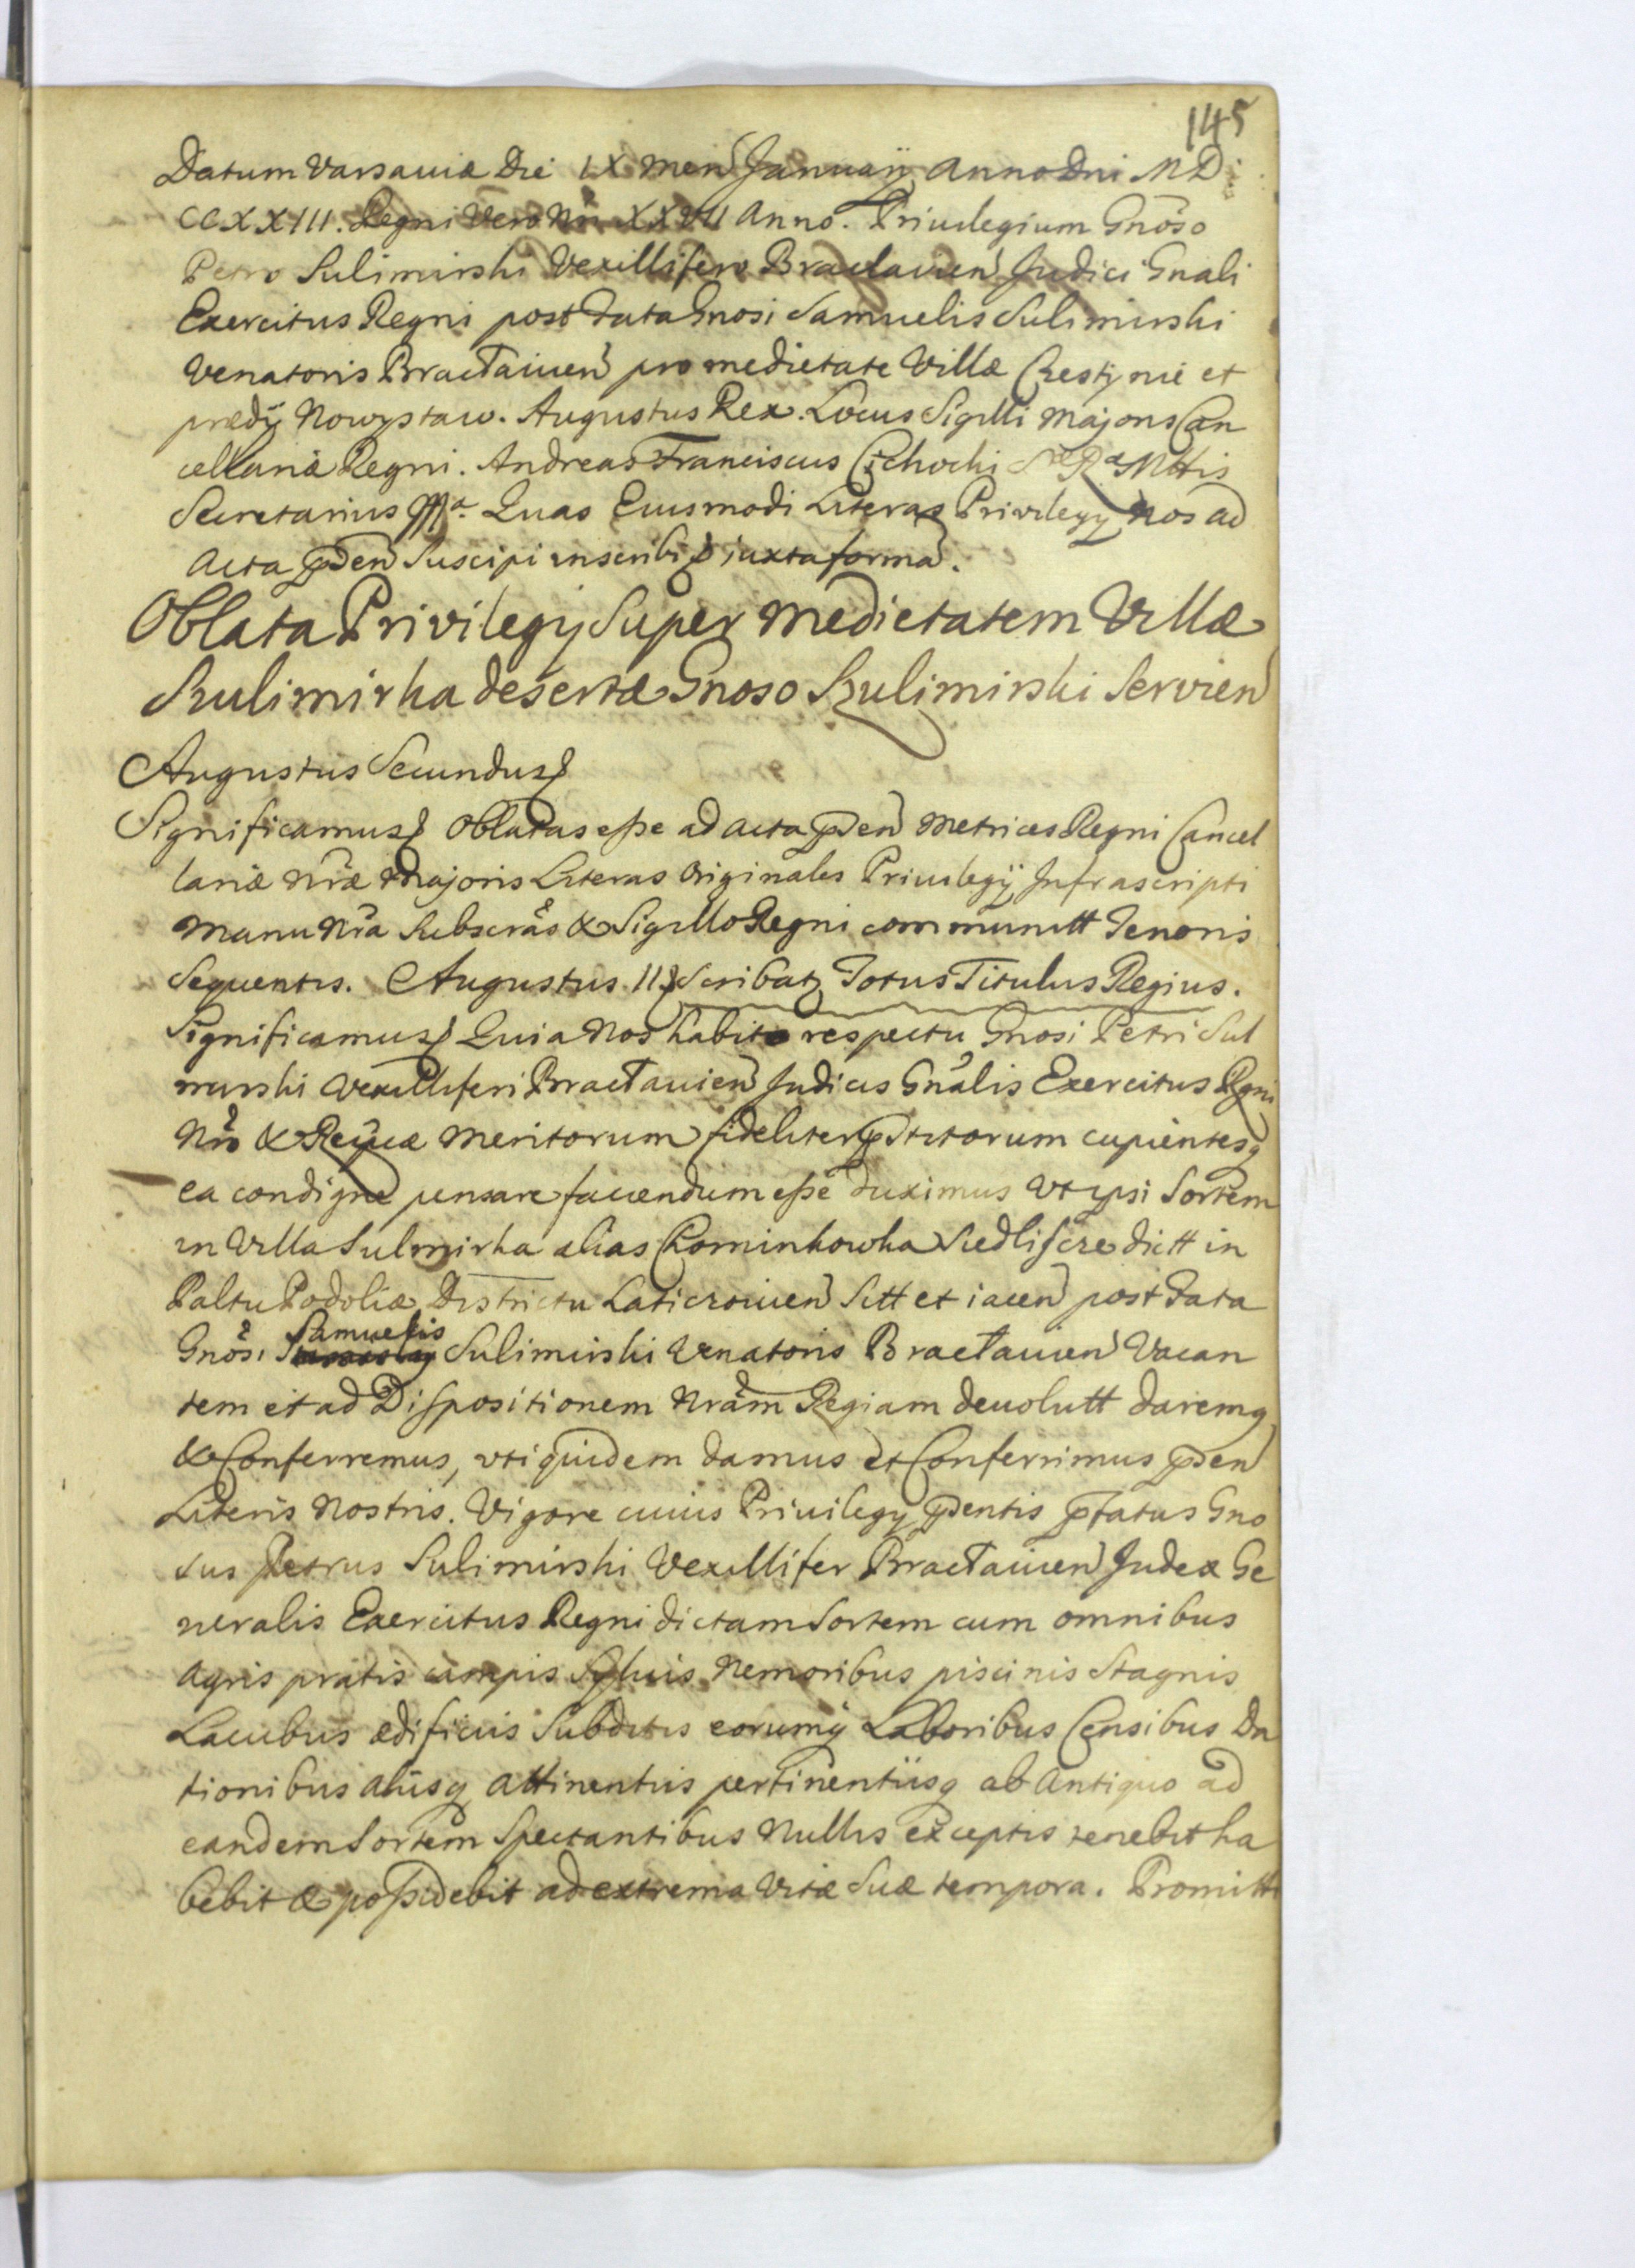 145
Datum Varsaviæ Die IX Men Januarij Anno Dni MD
CCXXIII. Regni Vero Nri XXVII Anno. Privilegium Gnoso
Petro Sulimirski Vexillifero Braclavien Judici Gnali
Exercitus Regni post Fata Gnosi Samuelis Sulimirski
Venatoris Bracłavien pro medietate Villæ et
prædij Nowystaw. Augustus Rex. Locus Sigilli Majoris Can
cellariæ Regni. Andreas Franciscus Cichocki S R Mttis
Secretarius Quas Eiusmodi Literas Privilegij Nos ad
Acta pden Suscipi inscribi iuxta forma.
Oblata Privilegij Super Medietatem Villæ
Szulimirka desertæ Gnoso Szulimirski Servien
Augustus Secundus
Significamus Oblatas esse ad acta pden Metrices Regni Cancel
lariæ Nræ Majoris Literas Originales Privilegij Infrascripti
Manu Nra Subscras & Sigillo Regni communitt Tenoris
Sequentis. Augustus II Scribatz Totus Titulus Regius.
Significamus Quia Nos habito respectu Gnosi Petri Sul
mirski Vexilliferi Bracłavien Judicis Gnalis Exercitus Rgni
Nro & Reipcæ Meritorum fideliter pstitorum cupientesq
ea condigne pensare faciendum esse duximus Vt ipsi Sortem
in Villa Sulmirka alias Kominkowka Siedliscze dictt in
Paltu Podoliæ Districtu Laticzovien Sitt et iacen post Fata
Gnosi Samuelis Sulimirski Venatoris Bracłavien Vacan
tem et ad Dispositionem Nram Regiam devolutt daremq
& Conferremus, vti quidem damus et Conferrimus pden
Literis Nostris. Vigore cuius Privilegij pdentis pfatus Gno
sus Petrus Sulimirski Vexillifer Bracłavien Judex Ge
neralis Exercitus Regni dictam Sortem cum omnibus
Agris pratis campis Sylvis Nemoribus piscinis Stagnis
Lacubus ædificiis Subditis eorumq Laboribus Censibus Da
tionibus aliisq Attinentiis pertinentiisq ab Antiquo ad
eandem Sortem Spectantibus Nullis exceptis tenebit ha
bebit & possidebit ad extrema Vitæ Suæ tempora. Promitt